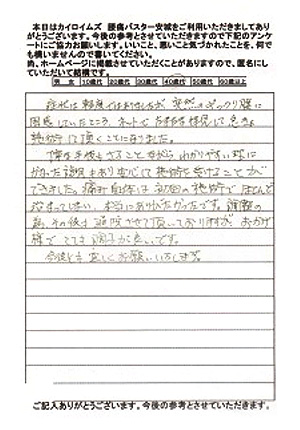 本日はカイロイムズ 腰痛バスター安城をご利用いただきましてあり
がとうございます。今後の参考とさせていただきますので下記のアンケ
ートにご協力お願いします。いいこと、悪いこと気づかれたことを、何で
も構いませんので書いてください。
尚、ホームページに掲載させていただくことがありますので、匿名にし
ていただいて結構です。
男 女 10歳代 20歳代 30歳代 40歳代 50歳代 60歳以上
症状は軽度ではありましたが 突然のギックリ腰に
困惑していたところ、ネットで
施術して頂くことになりました。
さることながら わかりやすい様に
説明もあり 安心して施術を受けることが
できました。痛み自体は 初回の施術で ほとんど
本当にありがたかったです。調整の
為、その後も 通院させて頂いておりますが、おかげ
様で とても 調子が良いです。
今後とも 宜しくお願いいたします。
ご記入ありがとうございます。今後の参考とさせていただきます。